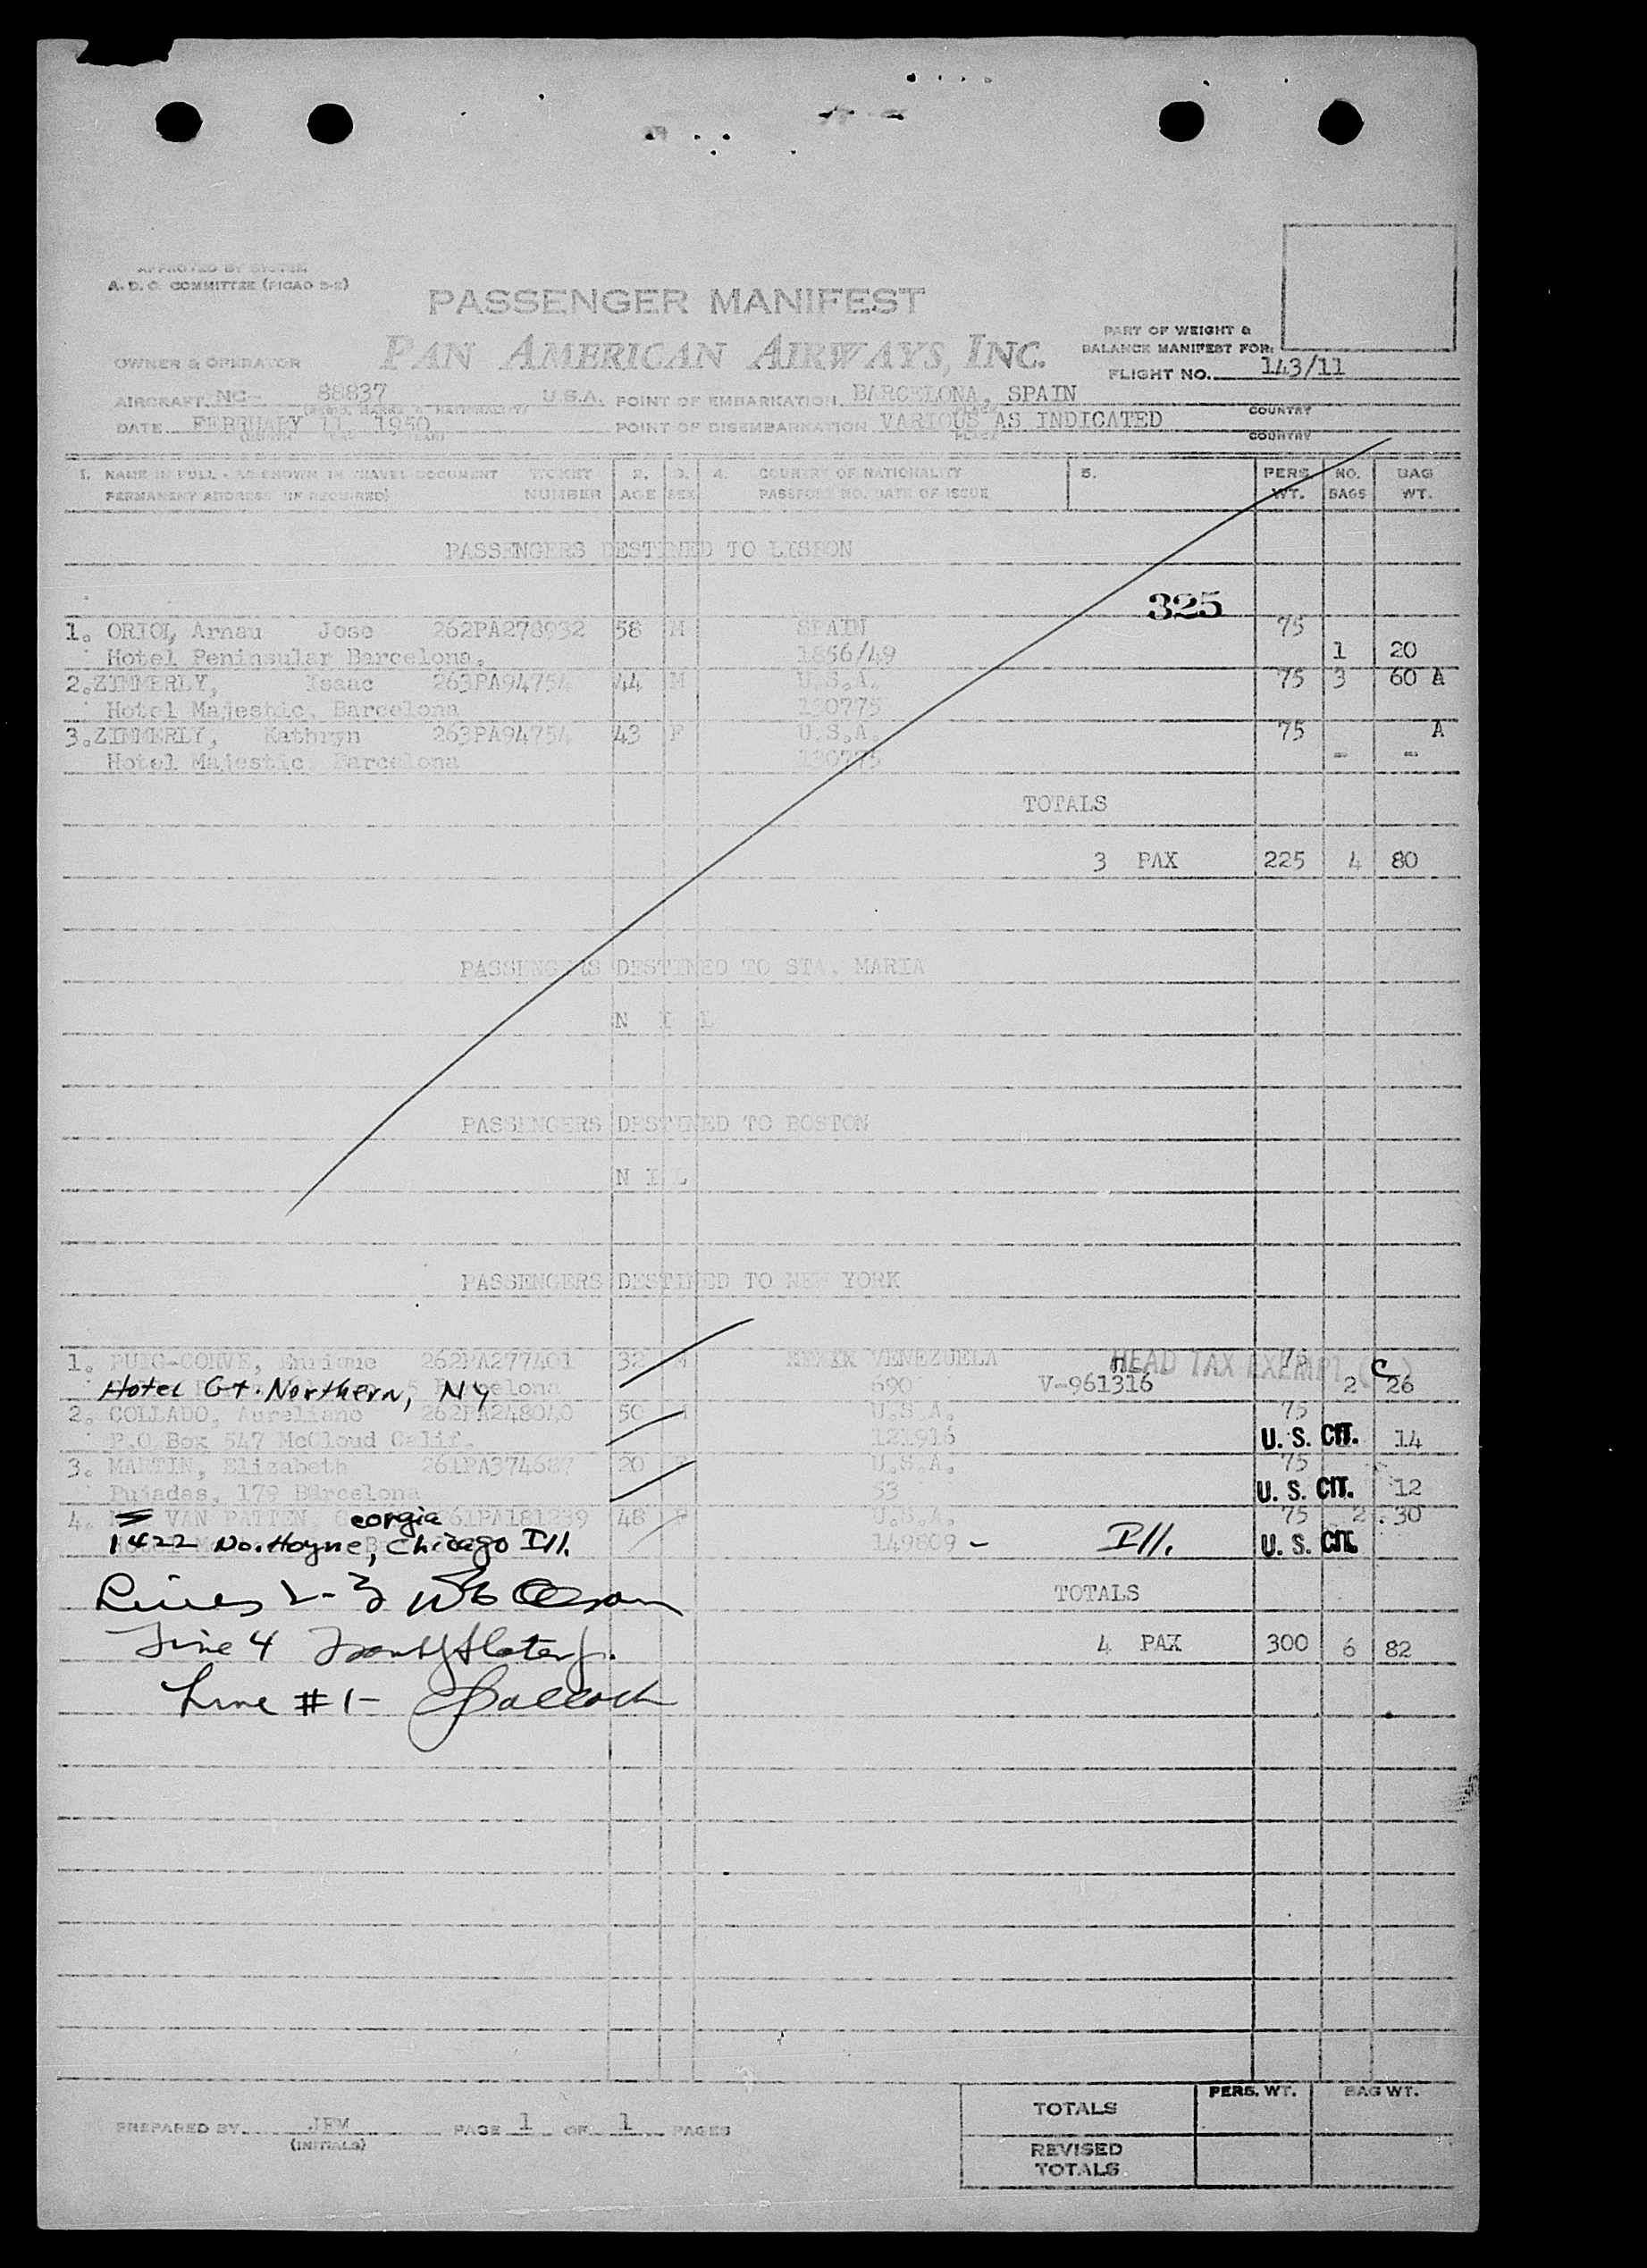 APPROVED BY SYSTEM
A. D. C. COMMITTEE (PICAO 3-2)
PASSENGER MANIFEST
PAN AMERICAN AIRWAYS, INC.
PART OF WEIGHT &
BALANCE MANIFEST FOR:
OWNER & OPERATOR
FLIGHT NO. 143/11
AIRCRAFT NC- 88837 U.S.A. POINT OF EMBARKATION BARCELONA, SPAIN
PLACE COUNTRY
DATE FEBRUARY 11, 1950 POINT OF DISEMBARKATION VARIOUS AS INDICATED
PLACE COUNTRY
1. NAME IN FULL - AS SHOWN IN TRAVEL DOCUMENT TICKET 2. 3. 4. COUNTRY OF NATIONALITY 5. PERS. NO. BAG
PERMANENT ADDRESS (IF REQUIRED) NUMBER AGE SEX PASSPORT NO. DATE OF ISSUE WT. BAGS WT.
PASSENGERS DESTINED TO LISBON
325
1. ORIOL, Arnau Jose 262PA278932 58 M SPAIN 75
Hotel Peninsular Barcelona. 1856/49 1 20
2. ZIMMERLY, Isaac 263PA94754 44 M U.S.A. 75 3 60 A
Hotel Majestic, Barcelona 130775
3. ZIMMERLY, Kathryn 263PA94754 43 F U.S.A. 75 A
Hotel Majestic, Barcelona 130775 - -
TOTALS
3 PAX 225 4 80
PASSENGERS DESTINED TO STA. MARIA
N I L
PASSENGERS DESTINED TO BOSTON
N I L
PASSENGERS DESTINED TO NEW YORK
1. PUIG-CORVE, Enrique 262PA277401 32 M VENEZUELA HEAD TAX EXEMPT (C) 75
Hotel Gt. Northern, NY 690 V-961316 2 26
2. COLLADO, Aureliano 262PA248040 50 M U.S.A. 75
P.O. Box 547 McCloud Calif. 121916 U. S. CIT. 14
3. MARTIN, Elizabeth 261PA374687 20 F U.S.A. 75
Pujadas, 179 Barcelona 53 U. S. CIT. 12
4. VAN PATTEN, Georgia 261PA181239 48 F U.S.A. 75 2 30
1422 No. Hoyne, Chicago Ill. 149809 - Ill. U. S. CIT.
Lines 2-3 TOTALS
Line 4 4 PAX 300 6 82
Line #1-
PERS. WT. BAG WT.
TOTALS
PREPARED BY JFM PAGE 1 OF 1 PAGES
(INITIALS)
REVISED
TOTALS